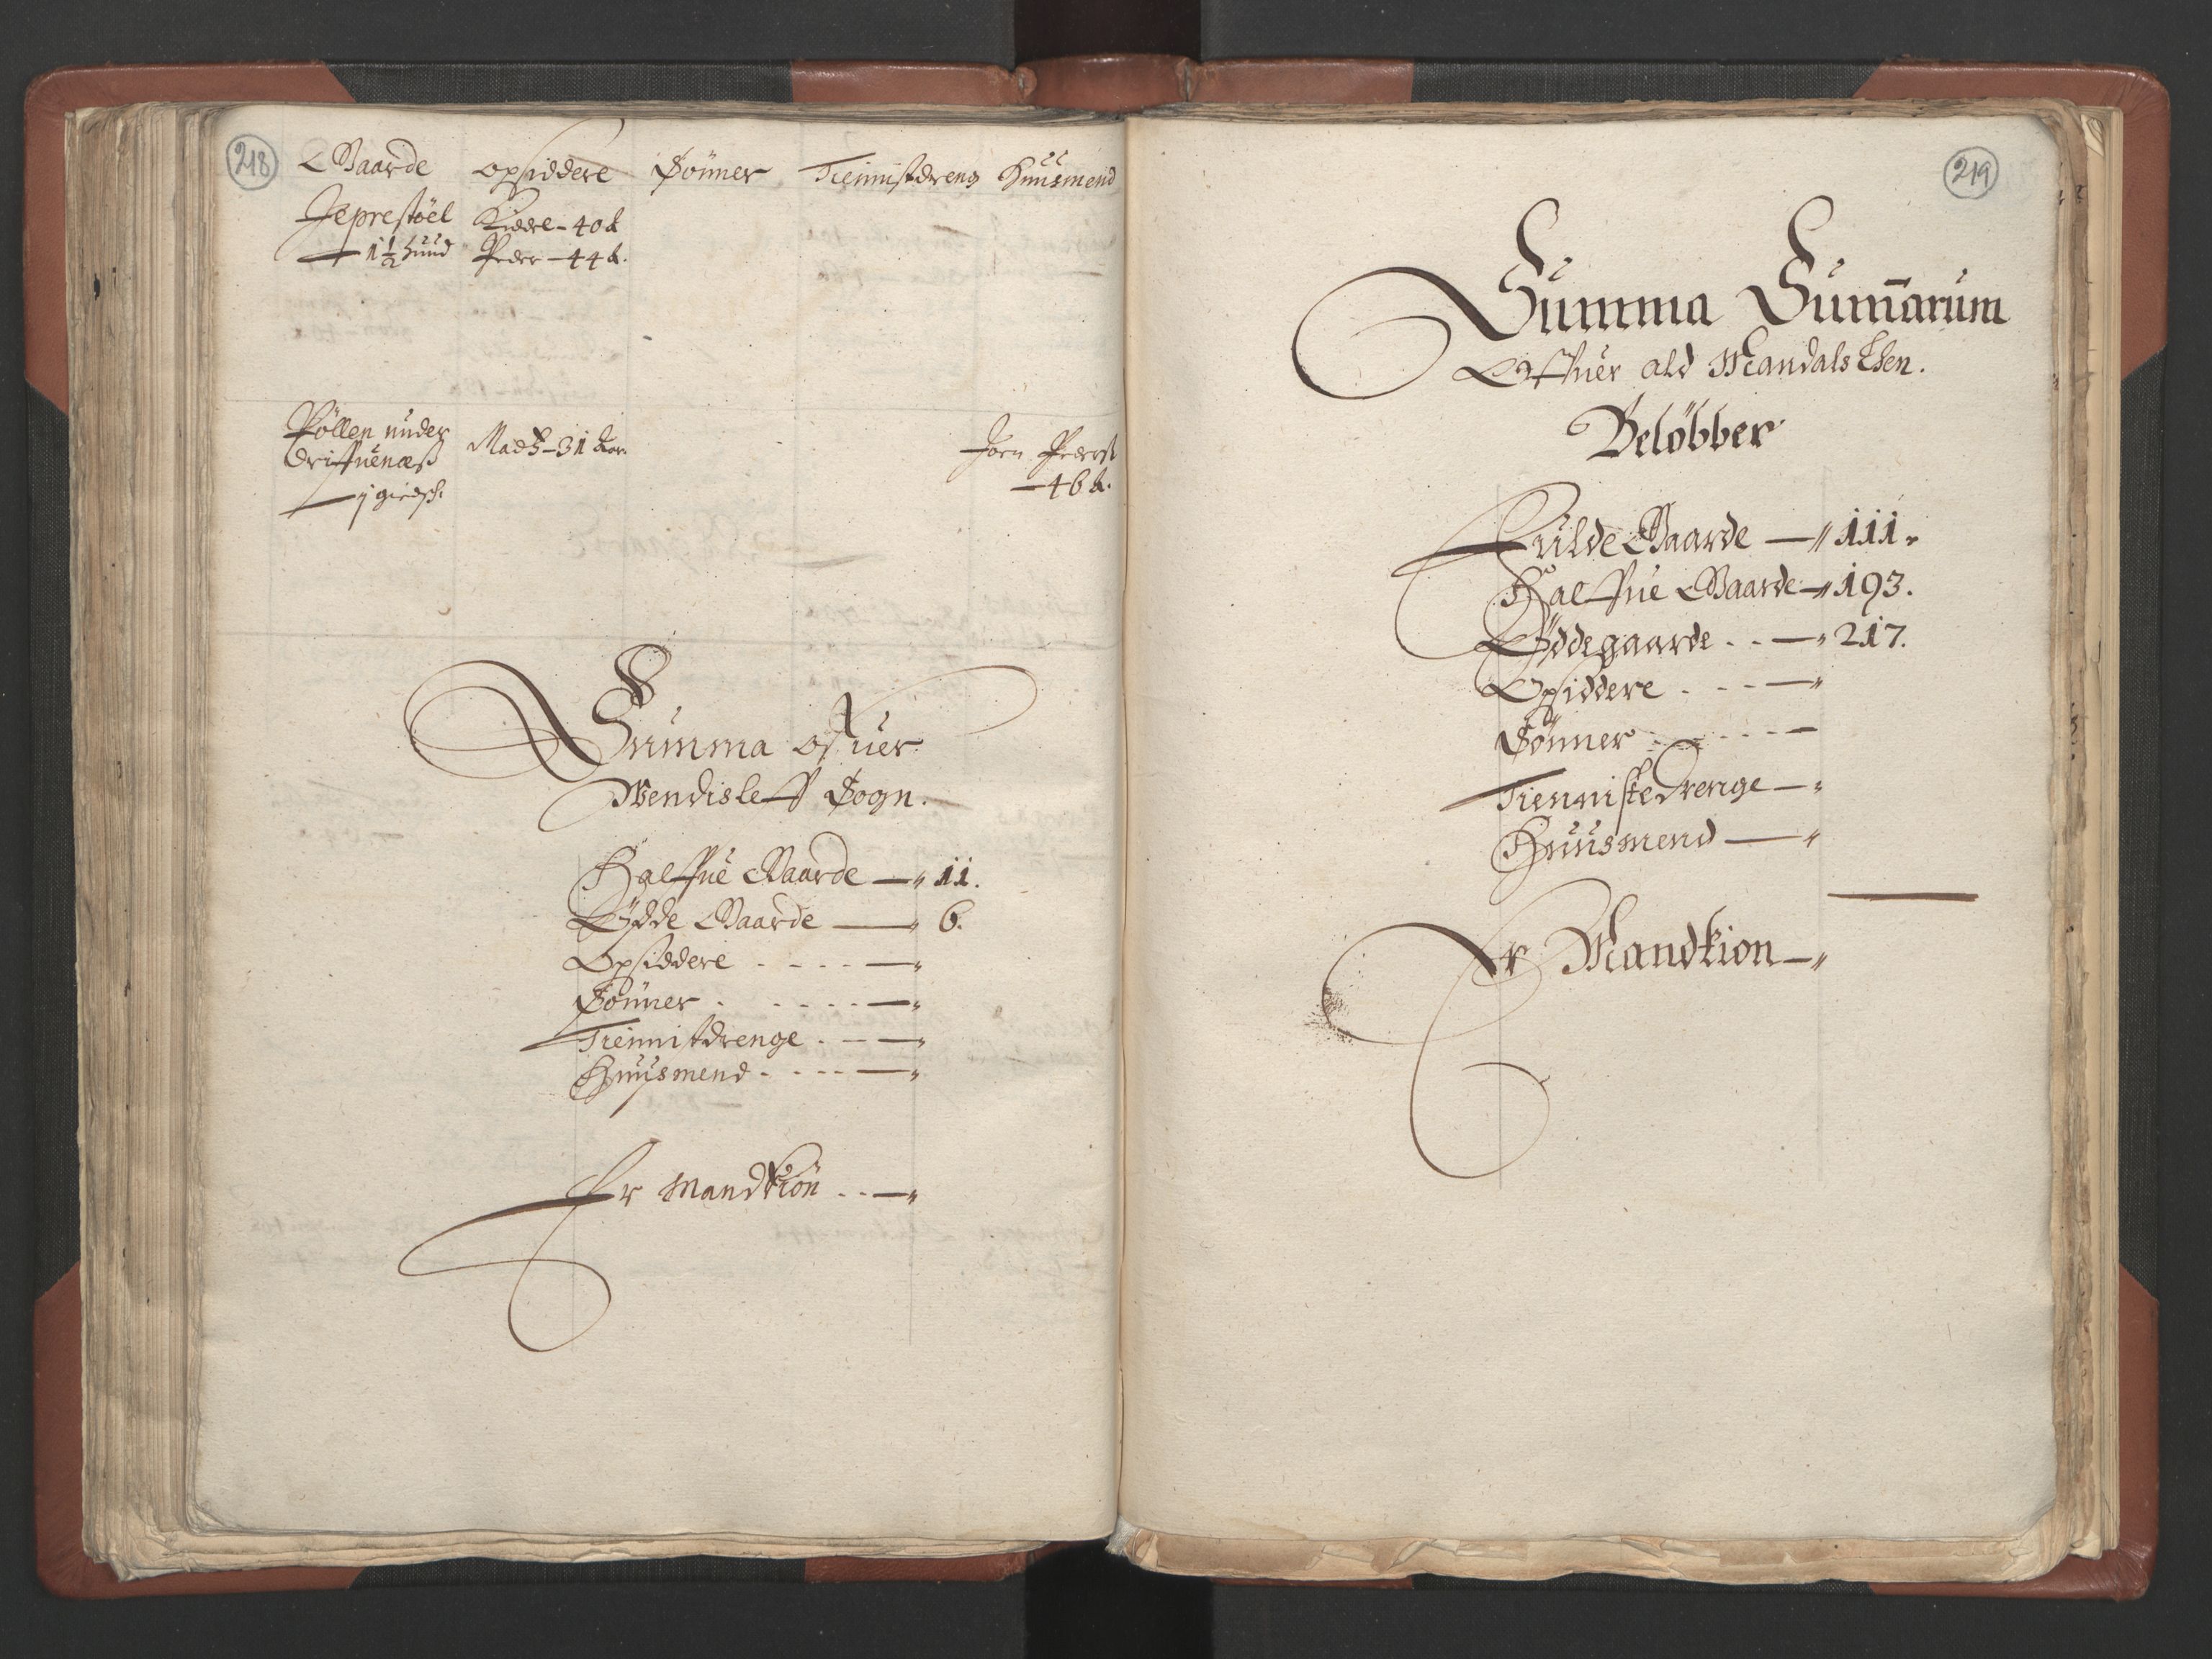 218
Gaarde opsiddere Sönner Tiennistdreng Huusmend
Jeprestöel Kiddel - 40 k
1½ huud Peder - 44 k.
Pöllen under Madtz - 31 Aar. Joen Peders
Driffuenæs - 46 k.
Summa offuer
Wendisleff Sogn.
Halffue Gaarde — 11.
Ödde Gaarde — 6.
Opsiddere - - - - —
Sönner - - - - —
Tiennistdrenge - - —
Huusmend - - - - —
Er Mandkiön - - —
219
Summa Sum̄arum
Offuer ald Mandals Lhen.
Belöbber
Fulde Gaarde — 111.
Halffue Gaarde — 193.
Öddegaarde - - — 217.
Opsiddere - - - —
Sönner - - - - —
Tiennistedrenge —
Huusmend —
Er Mandkion —